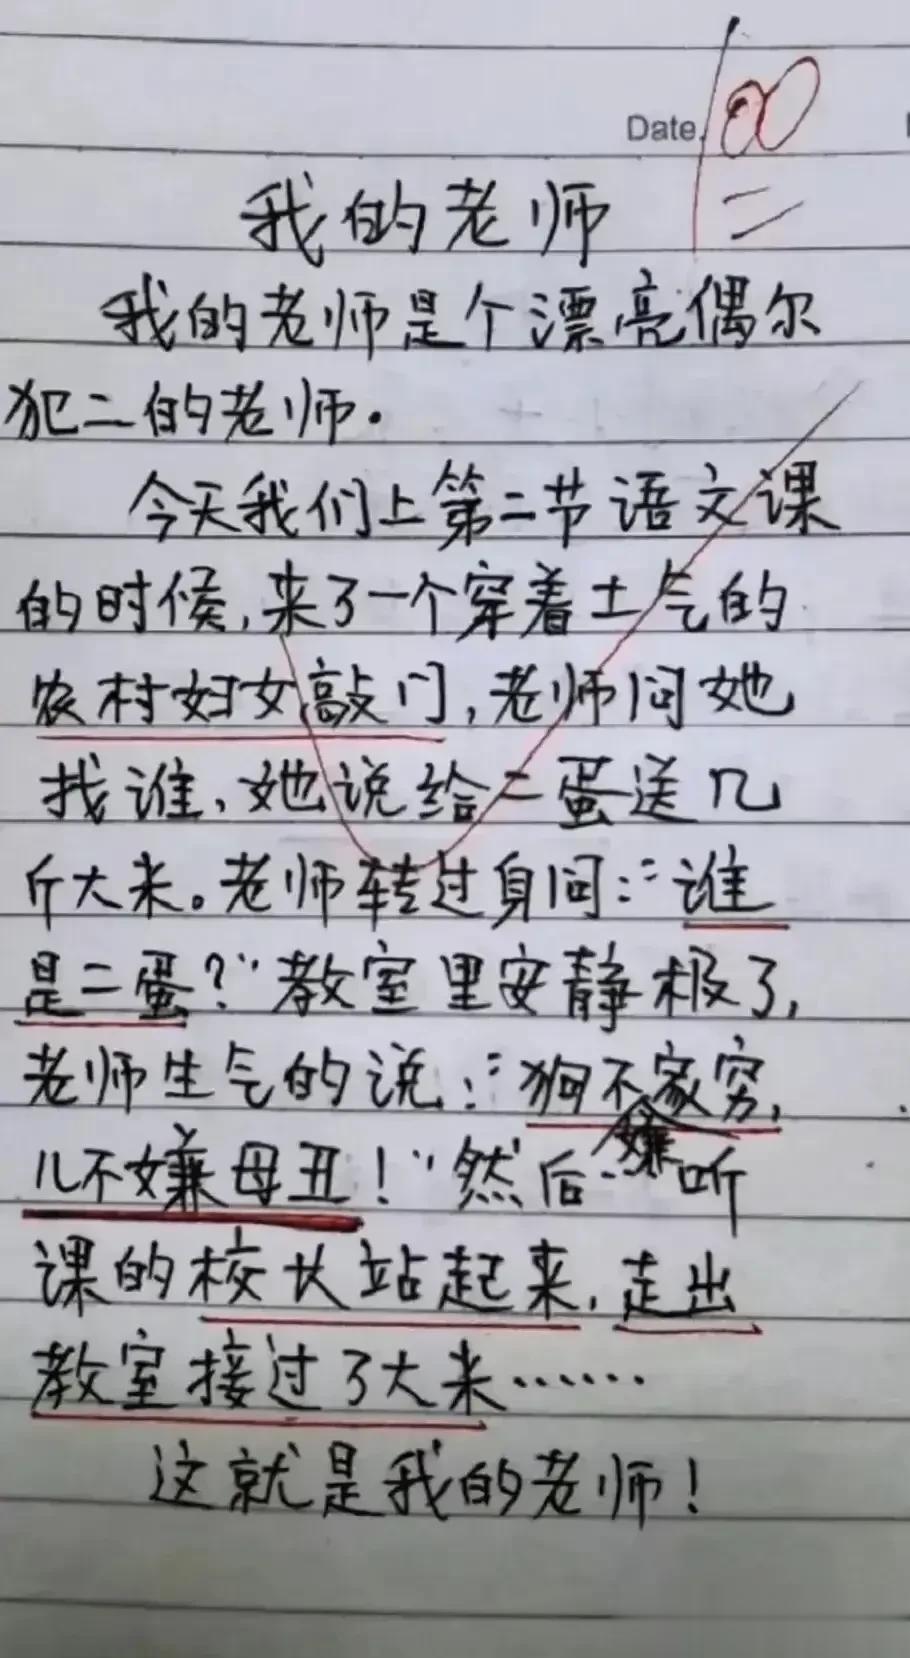 Date.
100
我的老师
我的老师是个漂亮偶尔
犯二的老师.
今天我们上第二节语文课
的时候,来了一个穿着土气的
农村妇女敲门,老师问她
找谁,她说给二蛋送几
斤大米。老师转过身问:"谁
是二蛋?"教室里安静极了,
老师生气的说:"狗不嫌家穷,
儿不嫌母丑!"然后听
课的校长站起来,走出
教室接过了大米……
这就是我的老师!